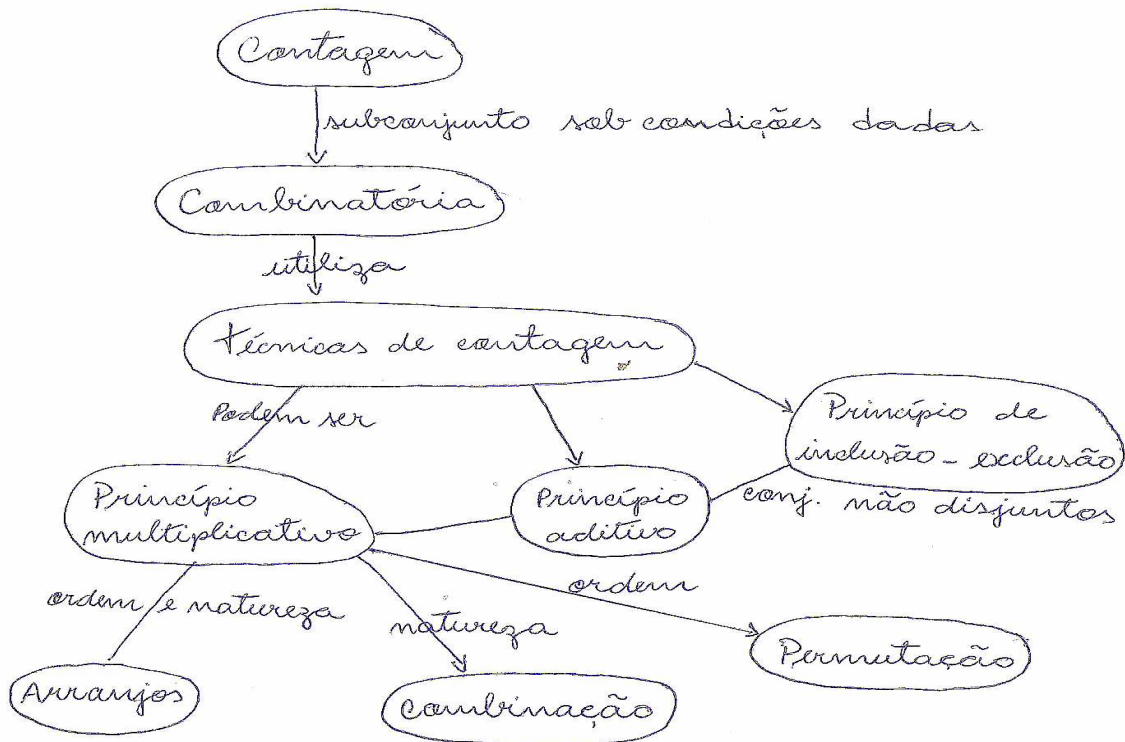 Contagem
subconjunto sob condições dadas
Combinatória
utiliza
técnicas de contagem
Podem ser
Princípio de
inclusão - exclusão
Princípio
multiplicativo
Princípio
aditivo
conj. não disjuntos
ordem e natureza
natureza
ordem
Permutação
Arranjos
combinação